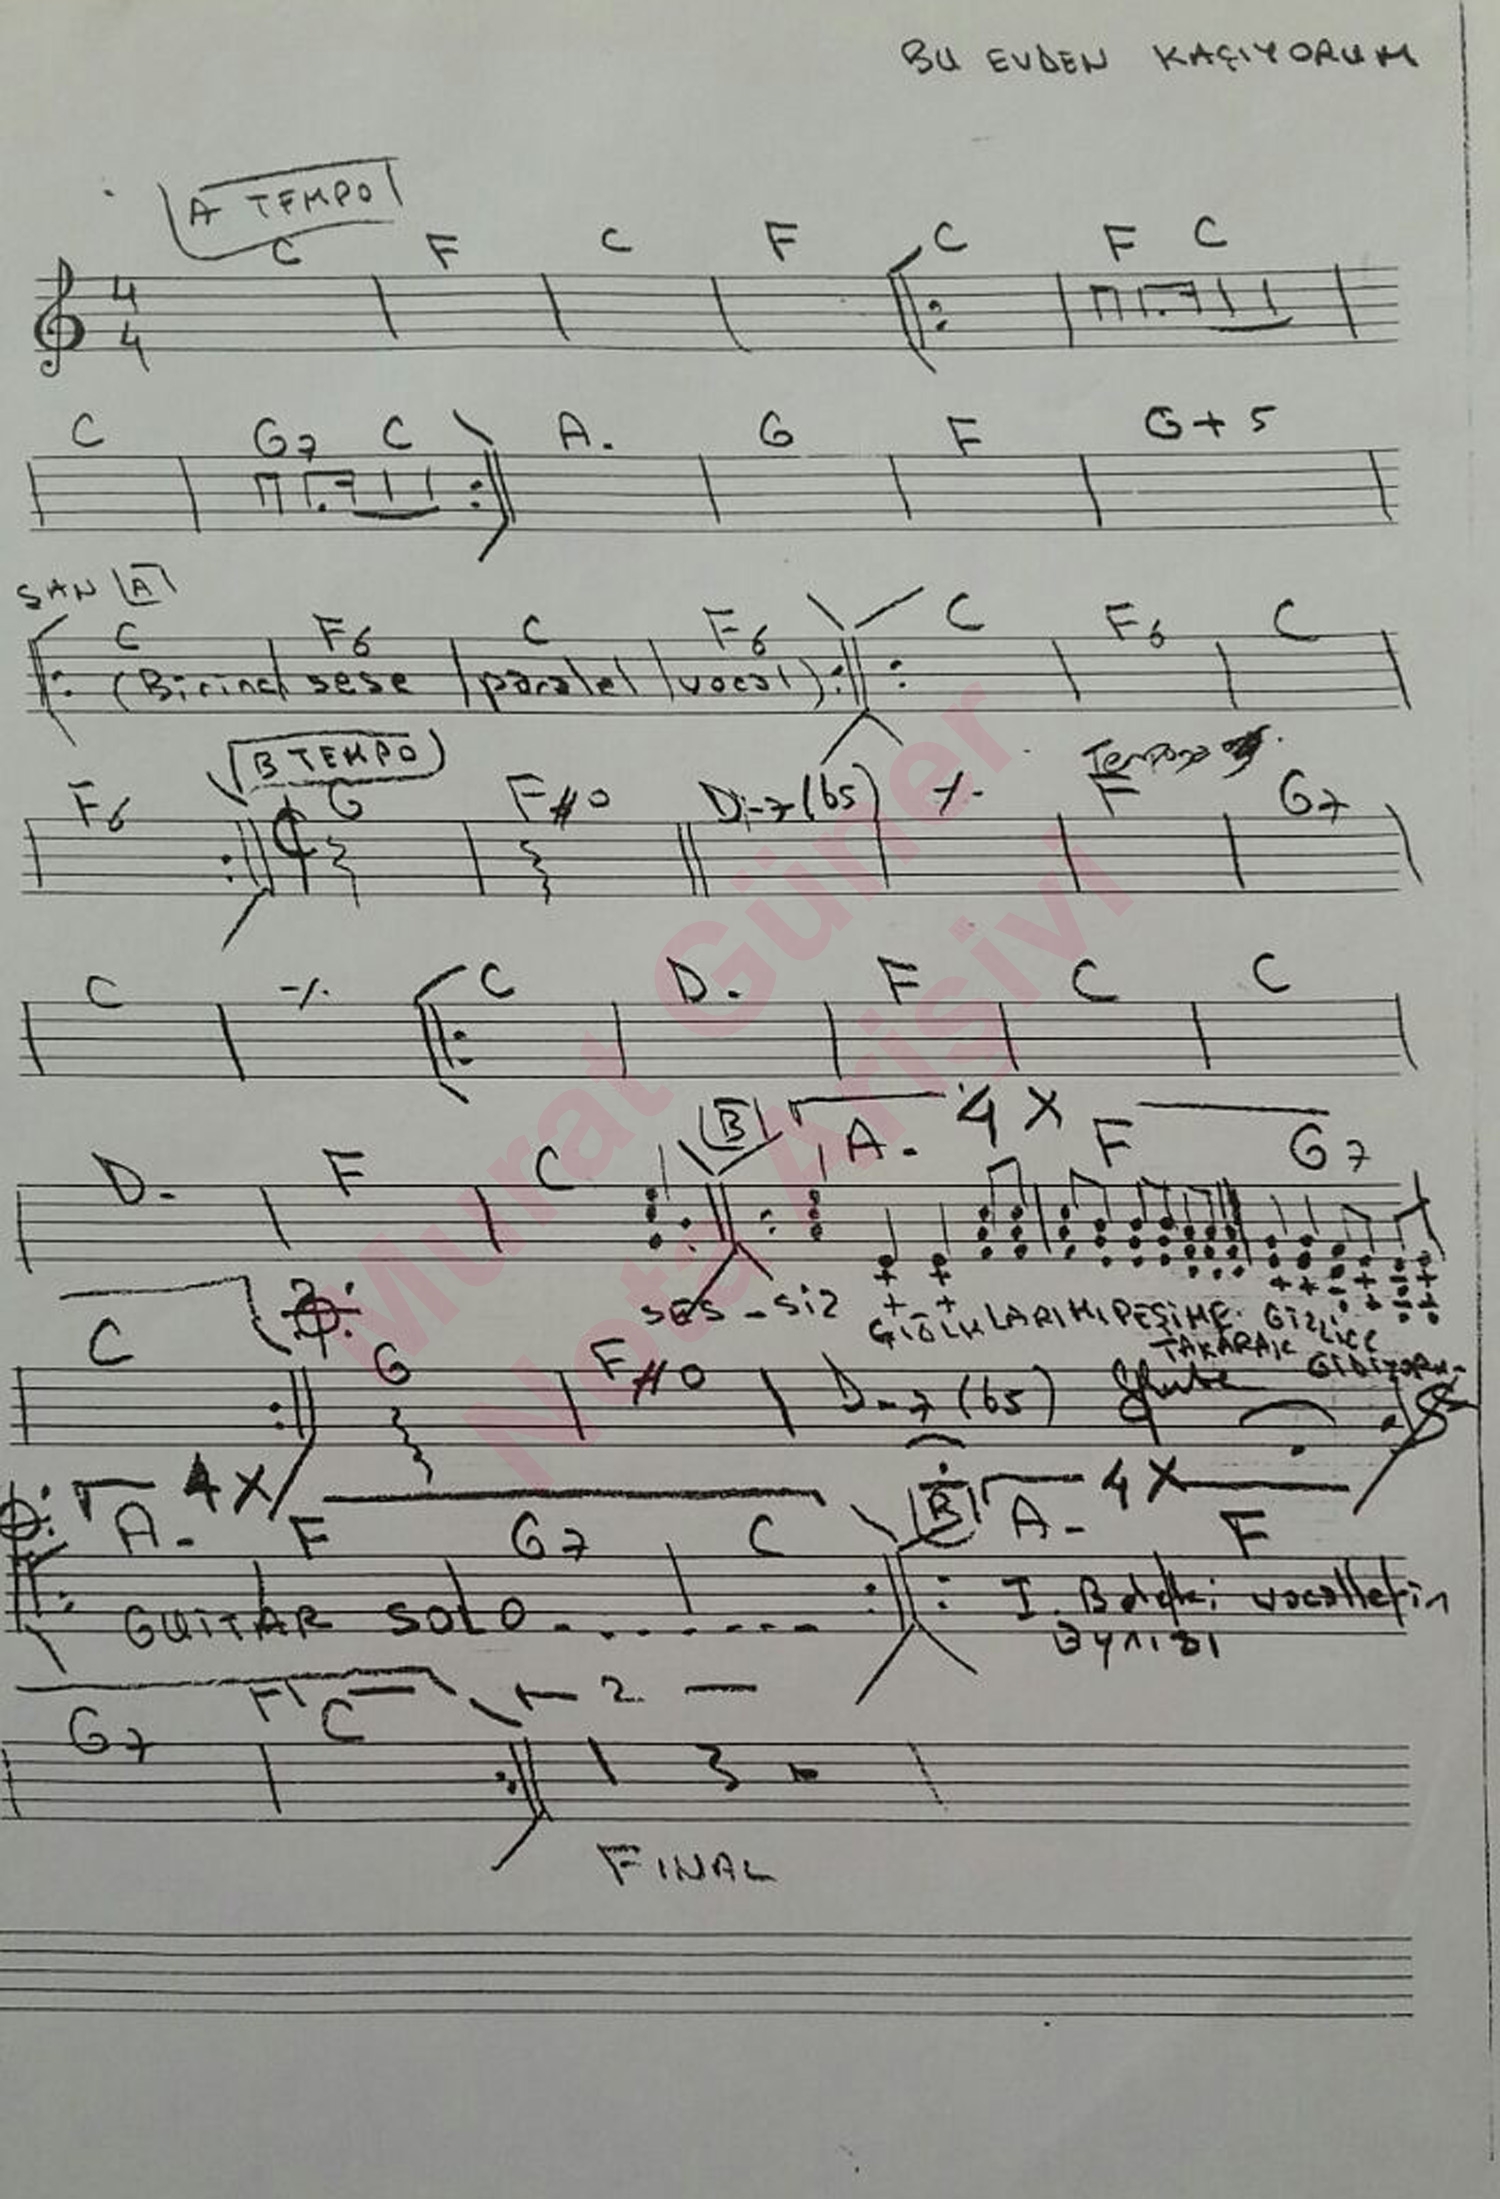 BU EVDEN KAÇIYORUM
A TEMPO
C F C F C F C
4
4
C G7 C A- G F G+5
ŞAN A
C F6 C F6 C F6 C
(Birinci sese paralel vocal)
B TEMPO
F6 G F#0 D-7(b5) F G7
C C D- F C C
B 4X
D- F C A- F G7
SES-SİZ
PEŞİME GİZLİCE
TAKARAK
C G F#0 D-7(b5)
4X B 4X
A- F G7 C A- F
GUİTAR SOLO
I. vocallerin
aynısı
2
G7 C
FINAL
Murat Güner
Nota Arisivi